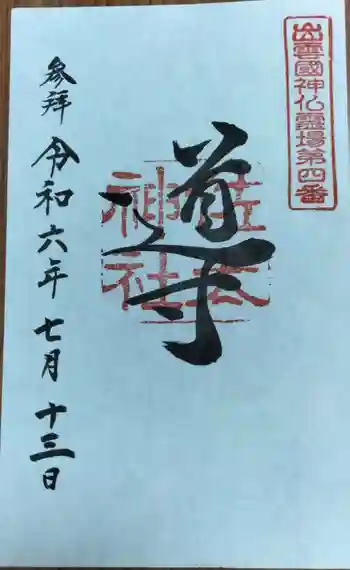 出雲國神仏靈場第四番
導
佐太
神社
参拝 令和六年 七月 十三日